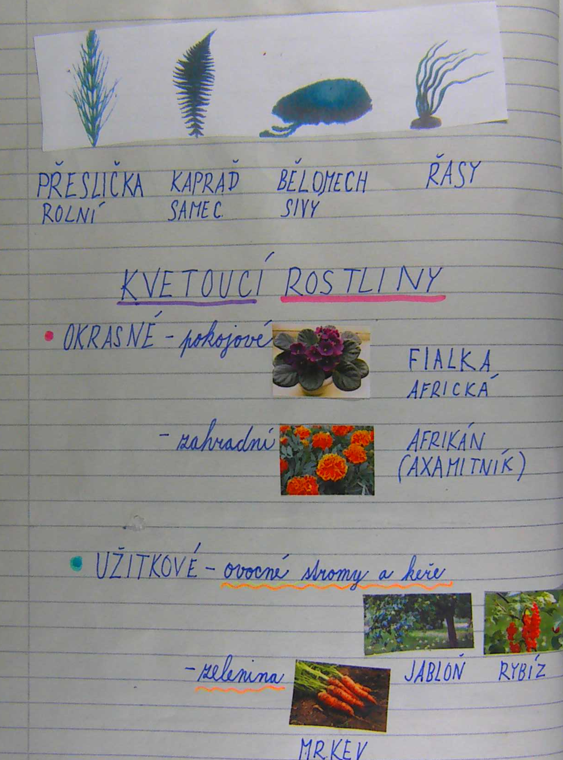 PŘESLIČKA KAPRAĎ BĚLOMECH ŘASY
ROLNÍ SAMEC SIVÝ
KVETOUCÍ ROSTLINY
OKRASNÉ - pokojové
FIALKA
AFRICKÁ
- zahradní AFRIKÁN
(AXAMITNÍK)
UŽITKOVÉ - ovocné stromy a keře
JABLOŇ RYBÍZ
- zelenina
MRKEV